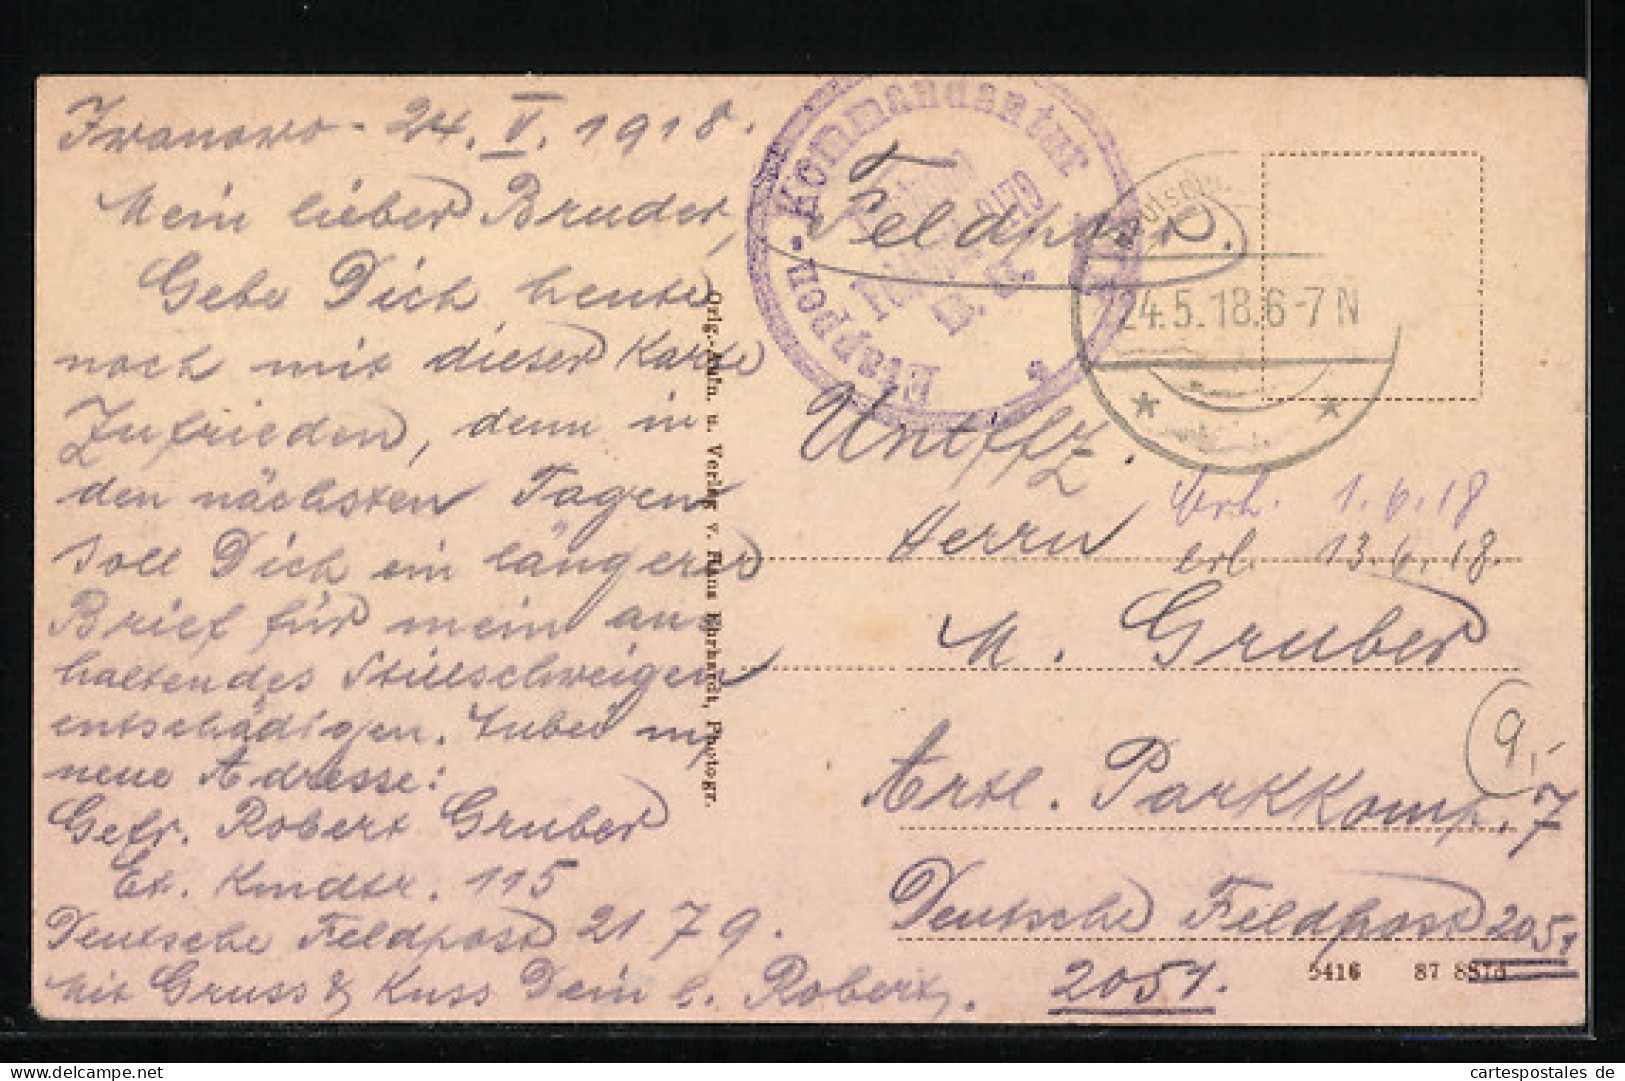 Iwanowo - 24. V. 1918.
Mein lieber Bruder,
Gebe Dich heute
noch mit dieser Karte
Zufrieden, denn in
den nächsten Tagen
soll Dich ein längerer
Brief für mein an-
haltendes Stillschweigen
entschädigen. Anbei m.
neue Adresse:
Gefr. Robert Gruber
Et. Kmdtr. 115
Deutsche Feldpost 2179.
Mit Gruss & Kuss Dein l. Robert.
Orig.-Aufn. u. Verlag v. Hans Ehrhardt, Photogr.
Etappen-Kommandantur
Feldpost.
24.5.18.6-7N
Untffz.
Herrn
erh. 1.6.18
erl. 13.6.18.
M. Gruber
9,-
Artl. Parkkomp. 7
Deutsche Feldpost 2051
2051.
5416 87
cartespostales de
cartespostales.de